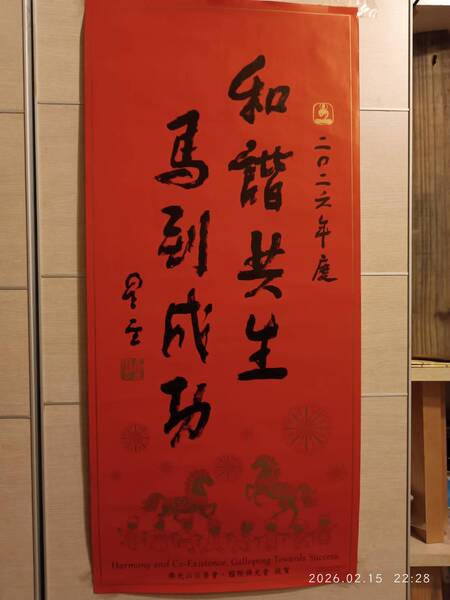 二〇二六年度
和諧共生
馬到成功
星雲
Harmony and Co-Existence, Galloping Towards Success.
佛光山公益會・國際佛光會 敬賀
2026.02.15 22:28